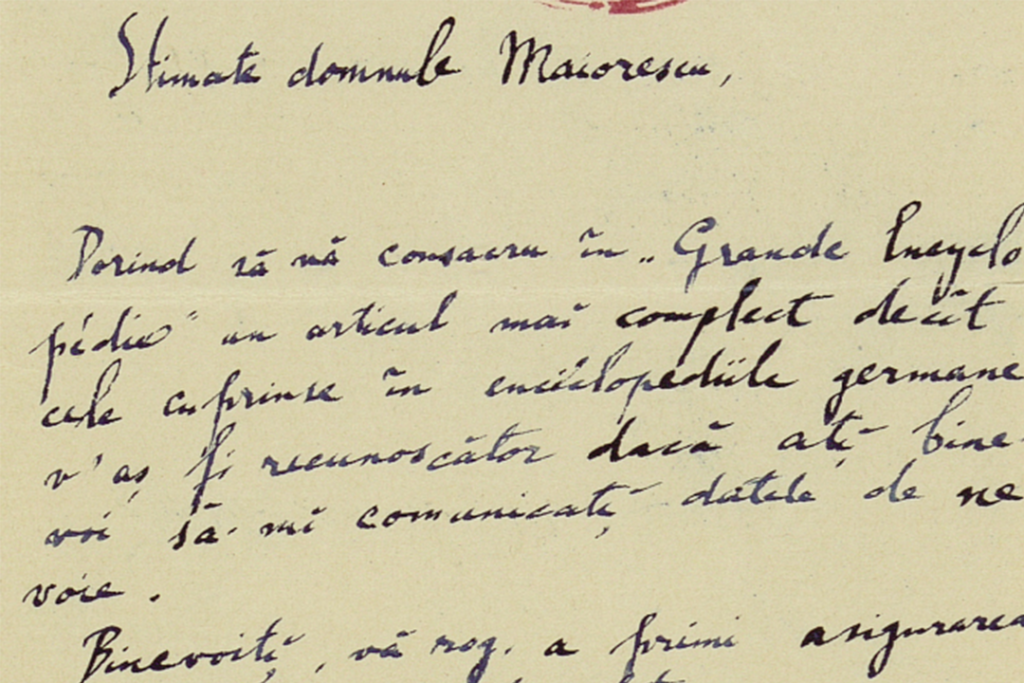 Stimate domnule Maiorescu,
Dorind să vă consacru în „Grande Encyclo
pédie" un articul mai complect decît
cele cuprinse în enciclopediile germane
v'aș fi recunoscător dacă ați bine-
voi să-mi comunicați datele de ne
voie.
Binevoiți, vă rog, a primi asigurarea